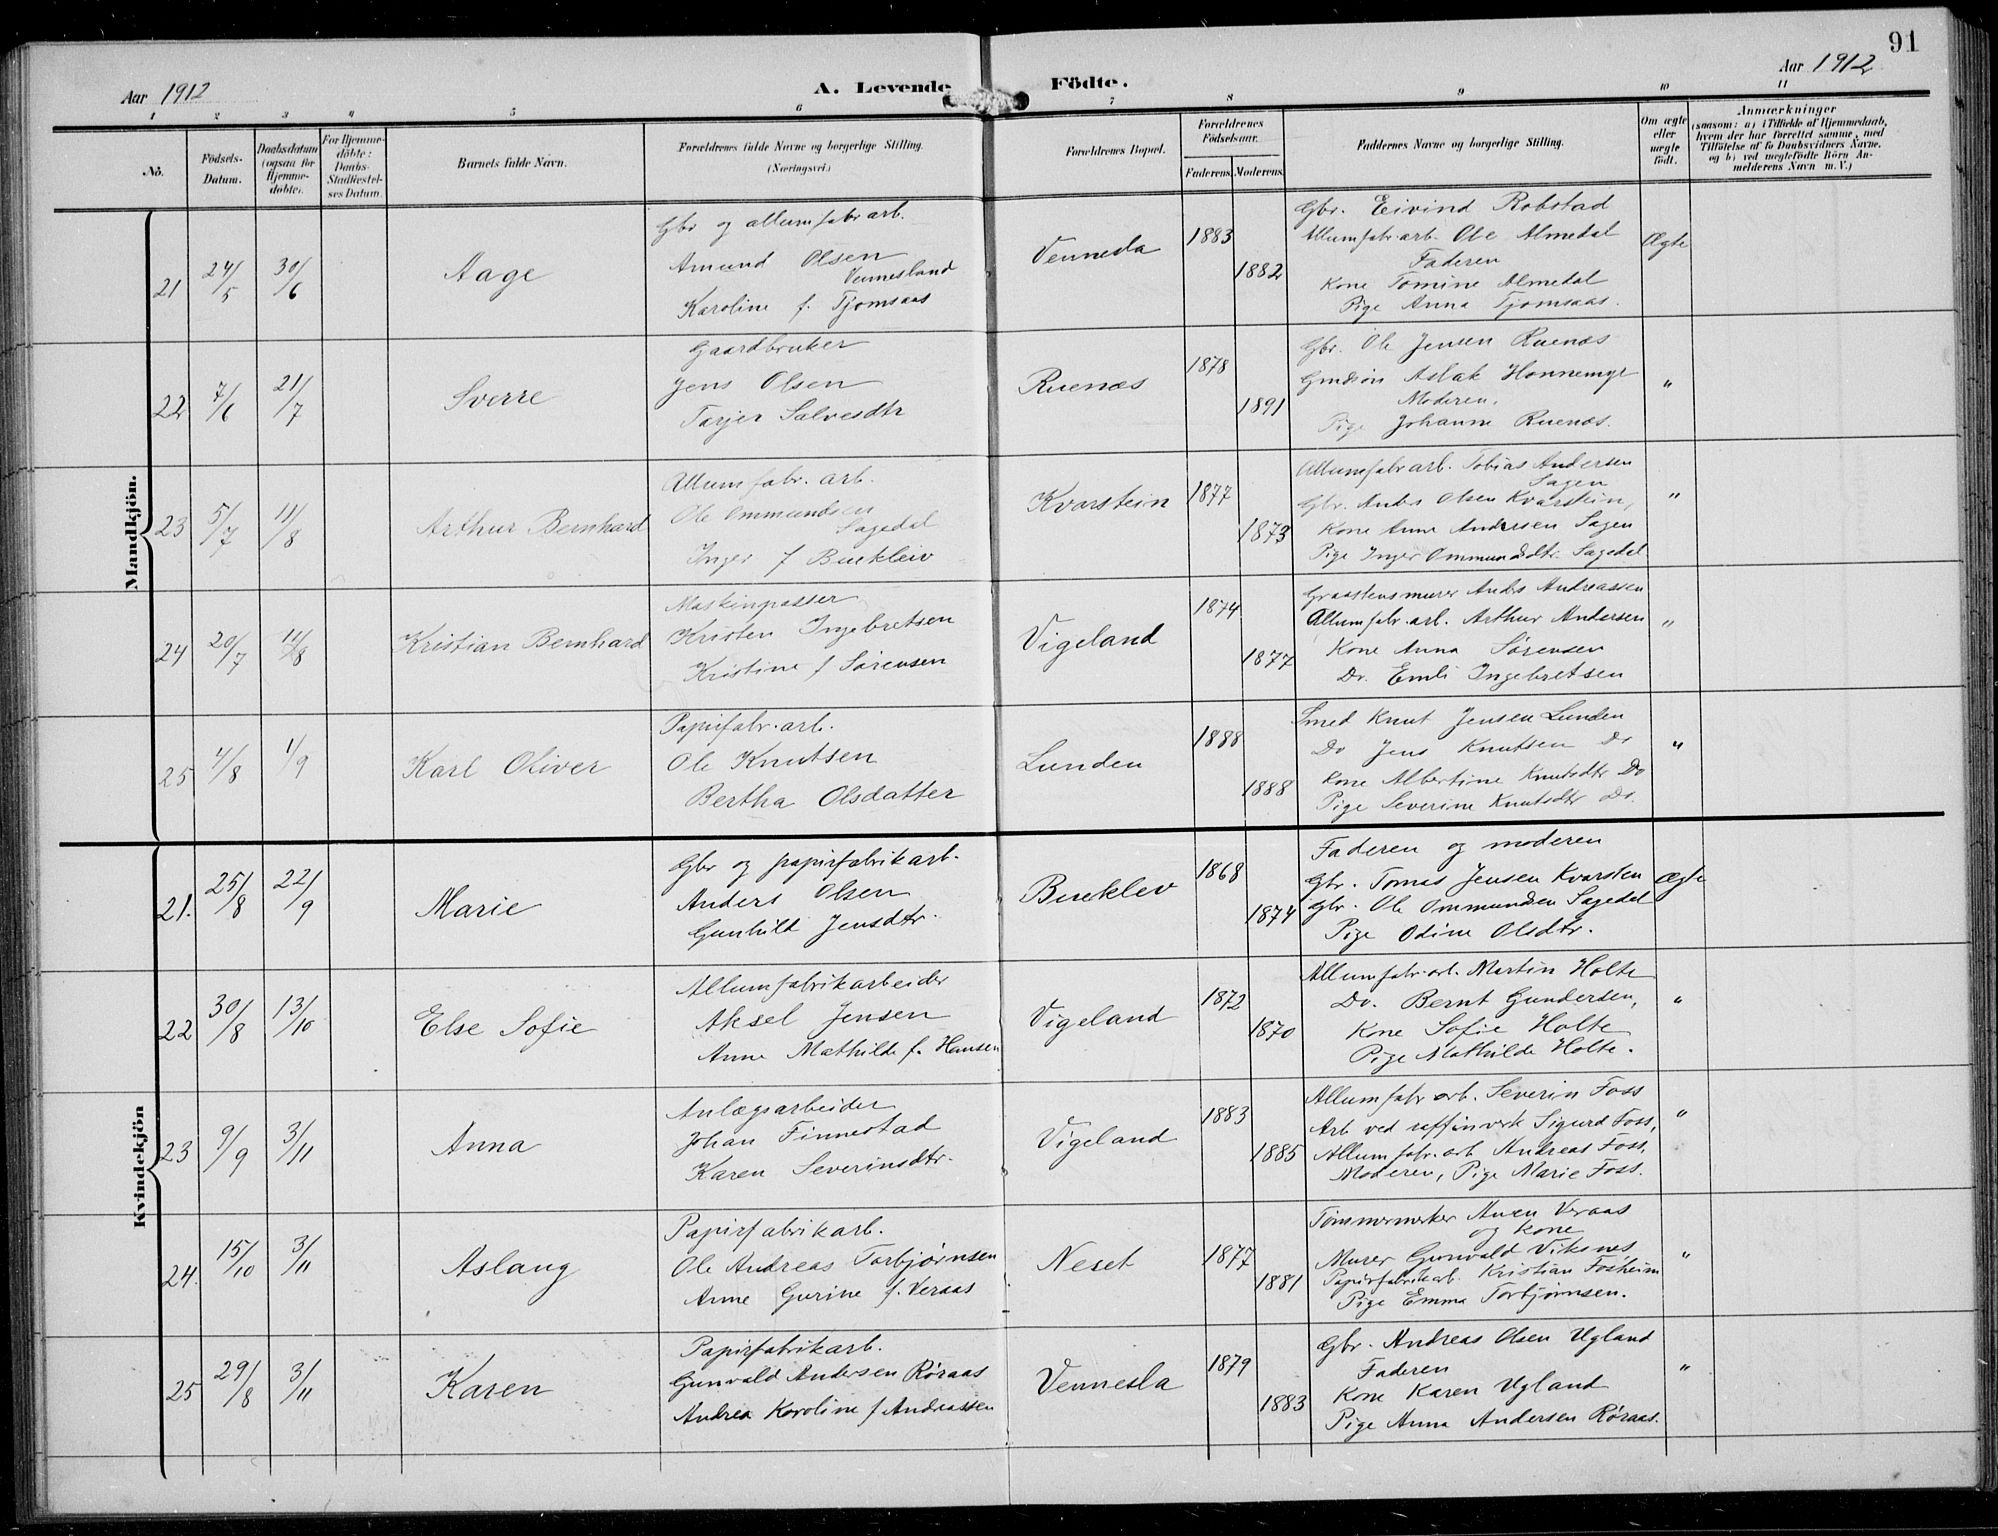 91
Aar 1912
A. Levende Födte.
Aar 1912
1 2 3 4 5 6 7 8 9 10 11
No.
Födsels-Datum.
Daabsdatum (ogsaa for Hjemme-döbte).
For Hjemme-döbte: Daabs Stadfæstel-ses Datum.
Barnets fulde Navn.
Forældrenes fulde Navne og borgerlige Stilling. (Næringsvei.)
Forældrenes Bopæl.
Forældrenes Födselsaar.
Faderens. Moderens.
Faddernes Navne og borgerlige Stilling.
Om ægte eller uægte födt.
Anmærkninger
(saasom: a) i Tilfælde af Hjemmedaab, hvem der har forrettet samme, med Tilföielse af to Daabsvidners Navne, og b) ved uegtefödte Börn An-melderens Navn m. V.)
Mandkjön.
21 24/5 30/6 Aage
Gbr og allumfabr arb.
Amund Olsen
Vennesland
Karoline f. Tjomsaas
Vennesla 1883 1882
Gbr. Eivind Robstad
Allumfabr. arb. Ole Almedal
Faderen
Kone Tomine Almedal
Pige Anna Tjomsaas.
Ægte
22 7/6 21/7 Sverre
Gaardbruker
Jens Olsen
Tarjer Salvesdtr
Ruenæs 1878 1891
Gbr. Ole Jensen Ruenæs
Aslak Honnemyr
Moderen.
Pige Johanne Ruenæs.
"
23 5/7 11/8 Arthur Bernhard
Allumfabr. arb.
Ole Ommundsen
Sagedal
Inger f Bueklev
Kvarstein 1877 1873
Allumfabr arb. Tobias Andersen
Sagen
Gbr. Anders Olsen Kvarstein,
Kone Anne Andersen Sagen
Pige Inger Ommundsdtr Sagedal
"
24 20/7 11/8 Kristian Bernhard
Maskinpasser
Kristen Ingebretsen
Kristine f Sørensen
Vigeland 1874 1877
Graastensmurer Anders Andreassen
Allumfabr. arb. Arthur Andersen
Kone Anna Sørensen
Do. Emli Ingebretsen
"
25 4/8 1/9 Karl Oliver
Papirfabr. arb.
Ole Knutsen
Bertha Olsdatter
Lunden 1888 1888
Smed Knut Jensen Lunden
Do Jens Knutsen Do
Kone Albertine Knutsdtr Do
Pige Severine Knutsdtr Do.
"
Kvindekjön
21. 25/8 22/9 Marie
Gbr og papirfabrikarb.
Anders Olsen
Gunhild Jensdtr.
Bueklev 1868 1874
Faderen og moderen
Gbr. Tomas Jensen Kvarsten
Gbr. Ole Ommundsen Sagedal
Pige Odine Olsdtr.
Ægte
22 30/8 13/10 Else Sofie
Allumfabrikarbeider
Aksel Jensen
Anne Mathilde f. Hansen
Vigeland 1872 1870
Allumfabr. arb. Martin Holte
Do. Bernt Gundersen,
Kone Sofie Holte
Pige Mathilde Holte.
"
23 9/9 3/11 Anna
Anlægsarbeider
Johan Finnestad
Karen Severinsdtr.
Vigeland 1883 1885
Allumfabr arb. Severin Foss
Arb ved raffinverk Sigurd Foss,
Allumfabr. arb Andreas Foss,
Moderen, Pige Marie Foss.
"
24. 15/10 3/11 Aslaug
Papirfabrikarb.
Ole Andreas Torbjørnsen
Anne Gurine f. Veraas
Neset 1877 1881
Tømmermerker Veraas
og kone
Murer Gunvald Viksnes
Papirfabrikarb. Kristian Fosheim
Pige Emma Torbjørnsen.
"
25 29/8 3/11 Karen
Papirfabrikarb.
Gunvald Andersen Røraas
Andrea Karoline f Andreassen
Vennesla 1879 1883
Gbr. Andreas Olsen Ugland
Faderen
Kone Karen Ugland
Pige Anna Andersen Røraas.
"